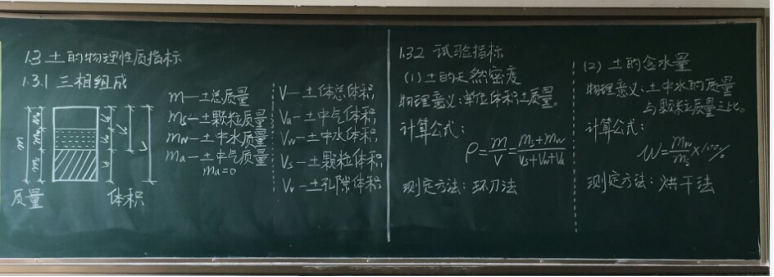 1.3 土的物理性质指标
1.3.1 三相组成
质量
体积
m—土总质量
ms—土颗粒质量
mw—土中水质量
ma—土中气质量
ma=0
V—土体总体积
Va—土中气体积
Vw—土中水体积
Vs—土颗粒体积
Vv—土孔隙体积
1.3.2 试验指标
(1) 土的天然密度
物理意义:单位体积土质量。
计算公式:
ρ=m/V=(ms+mw)/(Vs+Vw+Va)
测定方法:环刀法
(2) 土的含水量
物理意义:土中水的质量
与颗粒质量之比。
计算公式:
W=mw/ms×100%
测定方法:烘干法